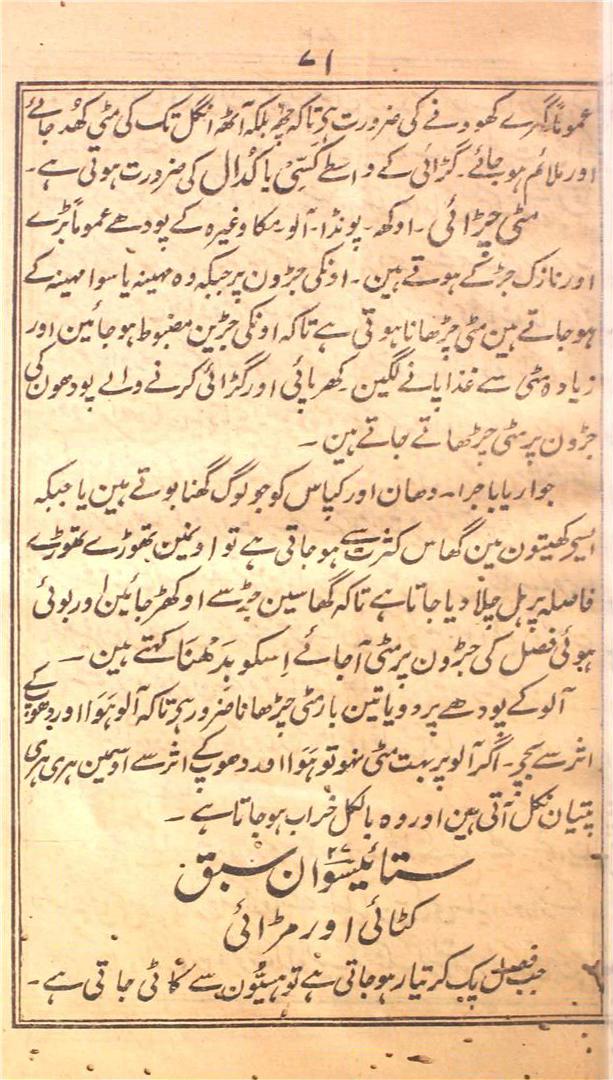 ۷۱
عموماً گہرے کھودنے کی ضرورت ہی تاکہ چھ بلکہ آٹھ انگل تک کی مٹی کھُد جائے
اور ملائم ہو جائے۔ گڑائی کے واسطے کَسّی یا کُدال کی ضرورت ہوتی ہے۔
مٹی چڑائی۔ اوکھ۔ پونڈا۔ آلو۔ مکا وغیرہ کے پودھے عموماً بڑے
اور نازک جڑ کے ہوتے ہین۔ اونکی جڑون پر جبکہ وہ مہینہ یا سوا مہینہ کے
ہو جاتے ہین مٹی چڑھانا ہوتی ہے تاکہ اونکی جڑین مضبوط ہو جائین اور
زیادہ مٹی سے غذا پانے لگین۔ کھرپائی اور گڑائی کرنے والے پودھون کی
جڑون پر مٹی چڑھاتے جاتے ہین۔
جوار یا باجرا۔ دھان اور کپاس کو جو لوگ گھنا بوتے ہین یا جبکہ
ایسی کھیتون مین گھاس کثرت سے ہو جاتی ہے تو اونمین تھوڑے تھوڑے
فاصلہ پر ہل چلا دیا جاتا ہے تاکہ گھاسین جڑ سے اوکھڑ جائین اور بوئی
ہوئی فصل کی جڑون پر مٹی آ جائے اِسکو بِدَھْنَا کہتے ہین۔
آلو کے پودھے پر دو یا تین بار مٹی چڑھانا ضرور ہی تاکہ آلو ہَوَا اور دھوپ کے
اثر سے بچی۔ اگر آلو پر بہت مٹی نہو تو ہَوَا اور دھوپ کے اثر سے اوسمین ہری ہری
پتیان نکل آتی ہین اور وہ بالکل خراب ہو جاتا ہے۔
ستائیسوان ۲۷ سبق
کٹائی اور مڑائی
جب فصل پک کر تیار ہو جاتی ہے تو ہنسیُّون سے کاٹی جاتی ہے۔